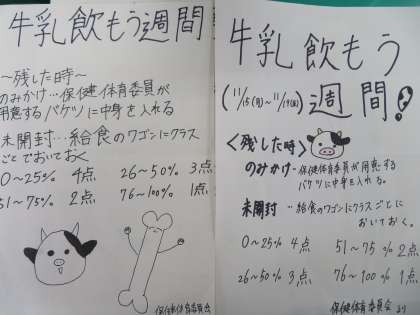 牛乳飲もう週間
〜残した時〜
のみかけ…保健体育委員が
用意するバケツに中身を入れる
未開封…給食のワゴンにクラス
ごとでおいておく
0〜25% 4点 26〜50% 3点
51〜75% 2点 76〜100% 1点
保健体育委員会
牛乳飲もう
(11/15(月)〜11/19(金)) 週間!
<残した時>
のみかけ…保健体育委員が用意する
バケツに中身を入れる。
未開封…給食のワゴンにクラスごとに
おいておく。
0〜25% 4点 51〜75% 2点
26〜50% 3点 76〜100% 1点
保健体育委員会より